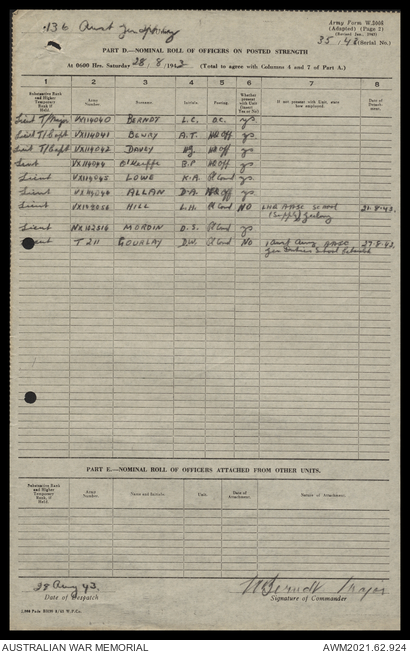 136 Aust
Army Form W.3008
(Adapted) (Page 2)
35/48 (Serial No.)
PART D.—NOMINAL ROLL OF OFFICERS ON POSTED STRENGTH
At 0600 Hrs. Saturday 28/8/1943 (Total to agree with Columns 4 and 7 of Part A.)
1 2 3 4 5 6 7 8
Substantive Rank and Higher Temporary Rank if Held. Army Number. Surname. Initials Posting. Whether present with Unit (Insert Yes or No) If not present with Unit, state how employed. Date of Detachment.
Lieut T/Major VX114040 BERNDT L.C. O.C. yes
Lieut T/Capt VX114041 BEWRY A.T. HQ Off yes
Lieut T/Capt VX114042 DAVEY HQ Off yes
Lieut O'Keeffe B.P. HQ Off yes
Lieut LOWE K.A. Pl Comd yes
Lieut ALLAN D.A. HQ Off yes
Lieut HILL L.H. Pl Comd NO LHQ AASC School 21-8-43
(Supply) Geelong
Lieut NX122516 MORDIN D.S. Pl Comd yes
Lieut T 211 GOURLAY D.W. Pl Comd NO 1 Aust Army AASC 27-8-43
School
PART E.—NOMINAL ROLL OF OFFICERS ATTACHED FROM OTHER UNITS.
Substantive Rank and Higher Temporary Rank if Held. Army Number. Name and Initials Unit. Date of Attachment. Nature of Attachment.
28 Aug 43. Berndt Major
Date of Despatch Signature of Commander
AUSTRALIAN WAR MEMORIAL AWM2021.62.924